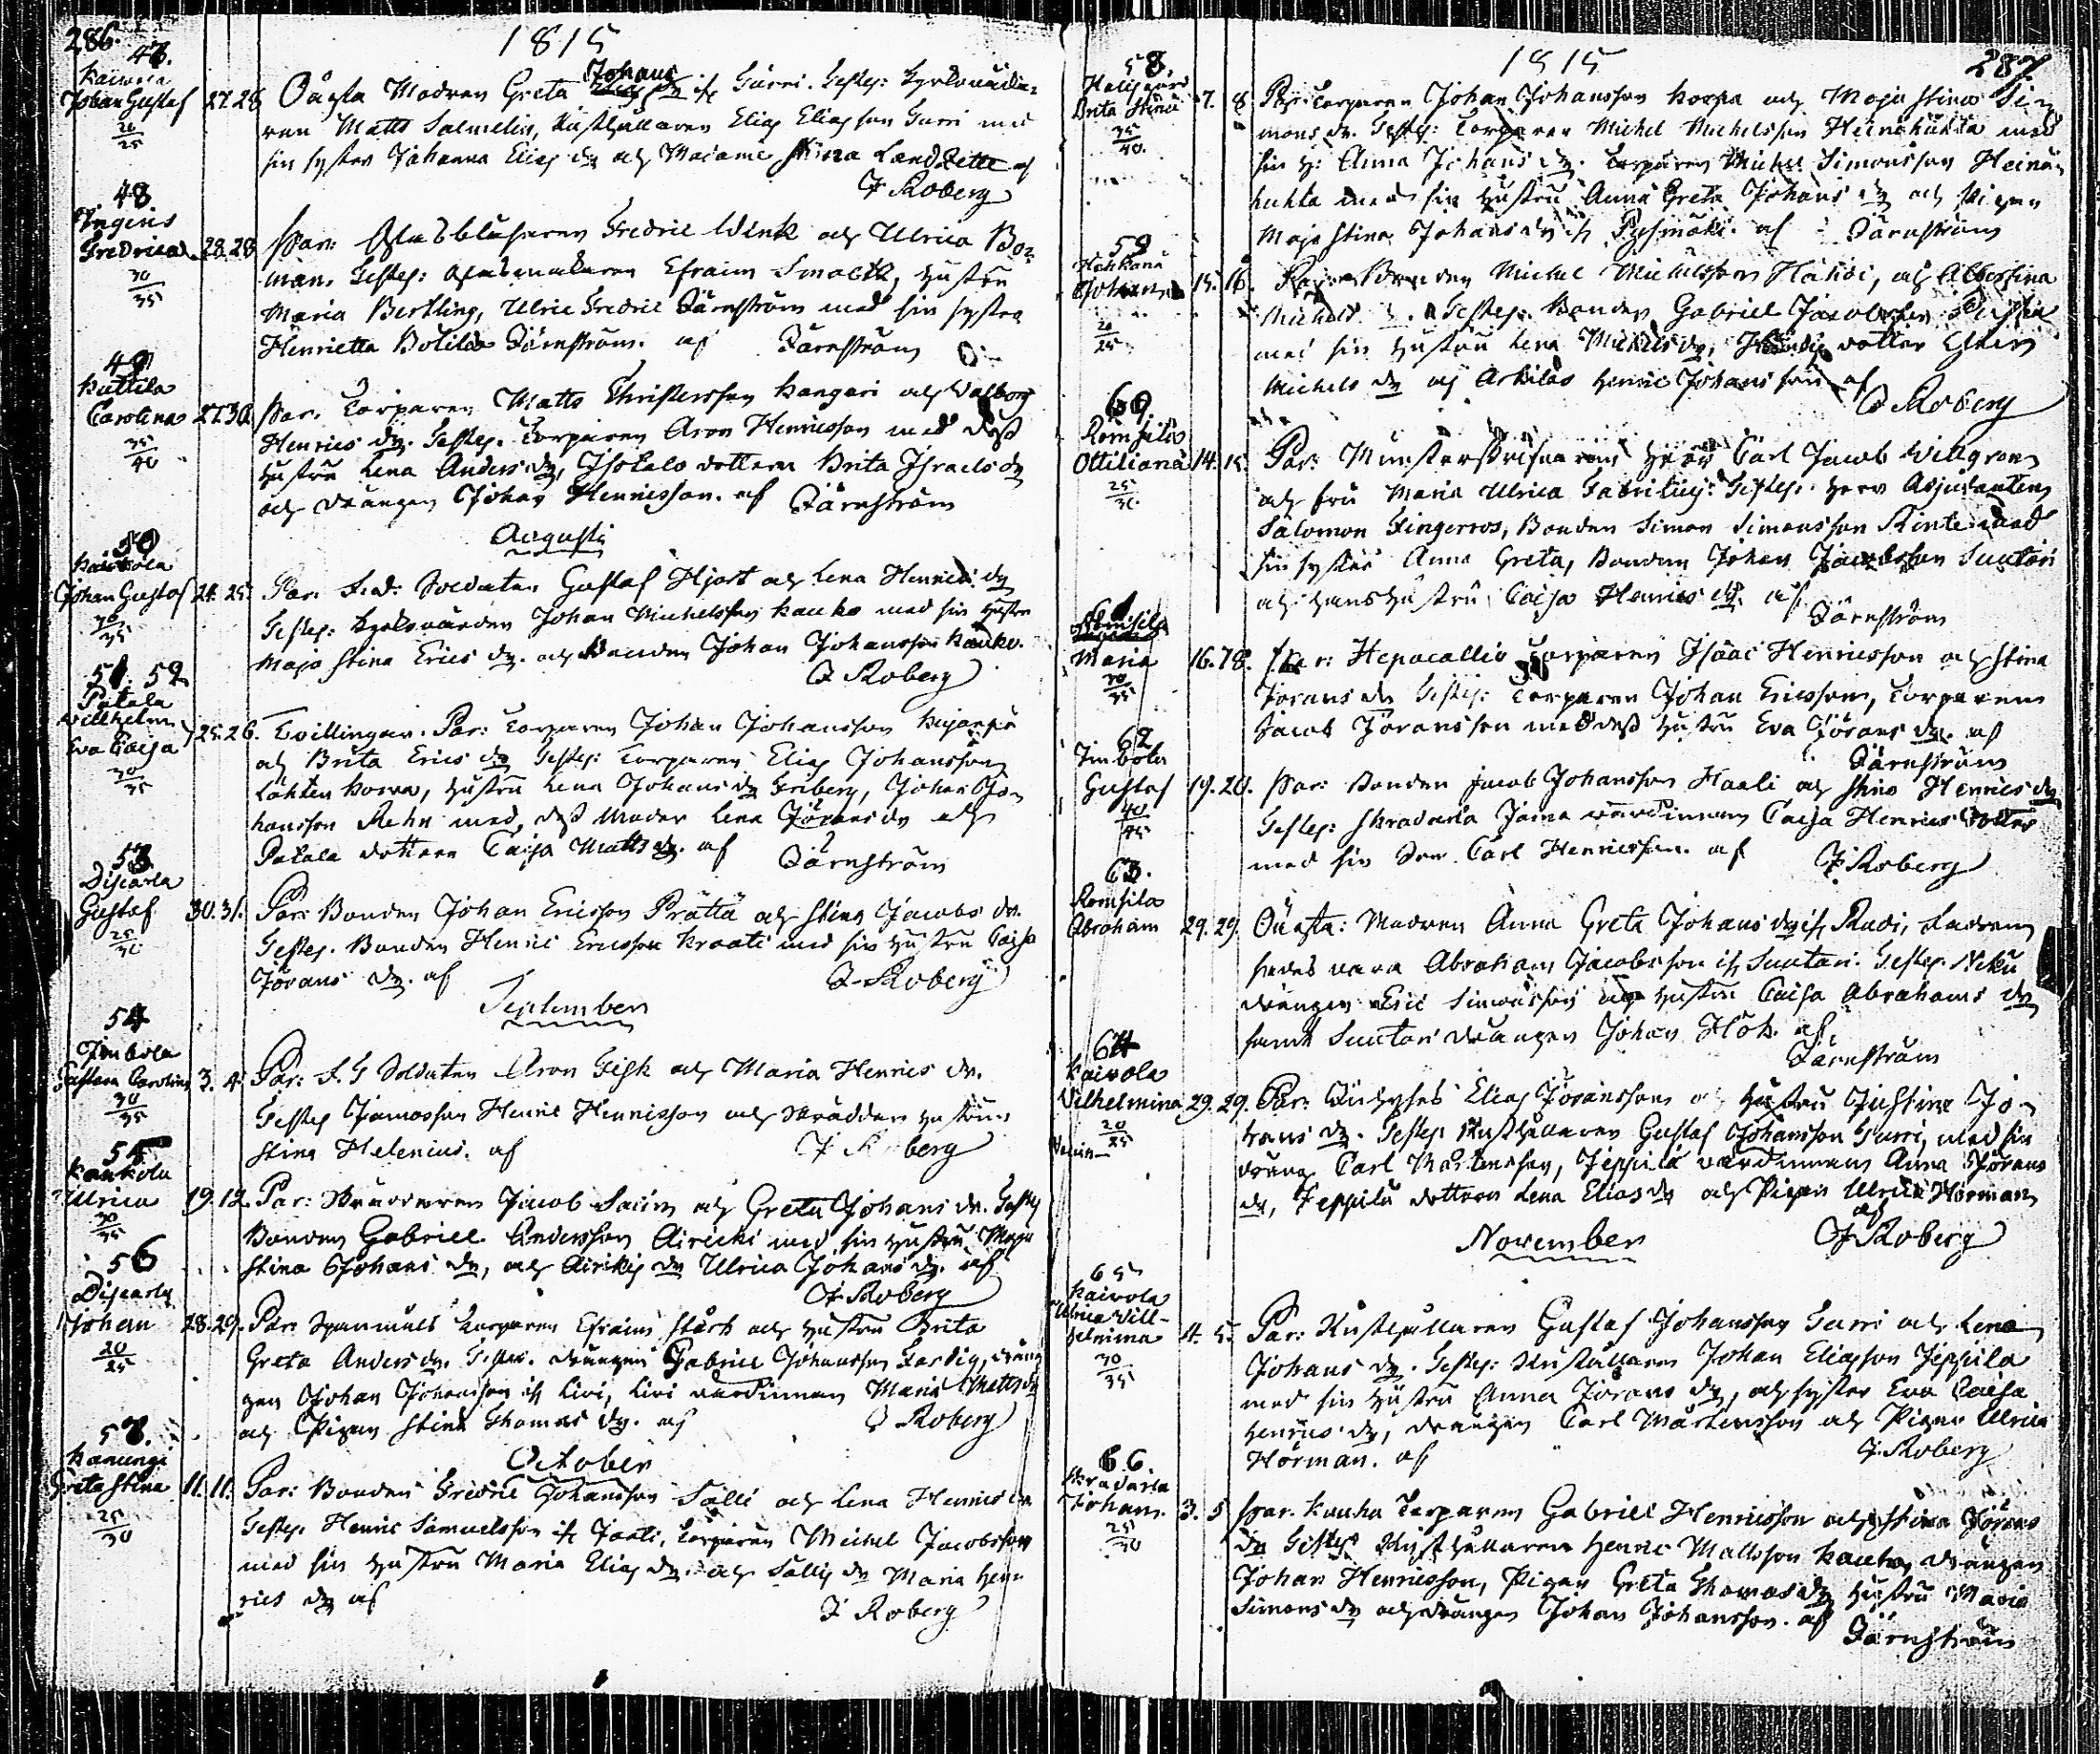 286.
1815
47.
Kaivola
Johan Gustaf 27. 28.
20/25
Oägta Modren Greta Johans dr ifr Gurri. Testes: Kyrkovärda-
ren Matts Salmelin, Rusthållaren Elias Eliasson Gurri med
sin syster Johanna Elias dr och Madame Stina af
J Roberg
48
Fredrica 28. 28
30/35
Par: Glasblåsaren Fredric Wink och Ulrica Bo-
man. Testes: Efraim hustru
Maria Bertling, Ulric Fredric Järnström med sin syster
Henrietta Botilda Järnström. af Järnström
49
Kuttila
Carolina 27. 30.
35/40
Par. Torparen Matts Christersson Kangari och Valborg
Henrics dr. Testes. Torparen Aron Henricsson med dess
hustru Lena Anders dr, Isotalo dottern Brita Israels dr
och drängen Johan Henricsson. af Järnström
Augusti
50
Johan Gustaf 24. 25.
30/35
Par. F.d. Soldaten Gustaf Hjort och Lena Henrics dr
Testes: Kyrkovärden Johan Michelsson Kauko med sin hustru
Maja Stina Erics dr. och Bonden Johan Johansson Kauko.
J Roberg
51. 52
Patala
Willhelm
Eva Caisa 25. 26.
30/35
Tvillingar. Par: Torparen Johan Johansson
och Brita Erics dr Testes: Torparen Elias Johansson
hustru Lena Johans dr Friberg, Johan Jo-
hansson Rehn med dess Moder Lena Jörans dr och
Patala dottern Caisa Matts dr. af Järnström
53
Discarla
Gustaf 30. 31.
25/30
Par: Bonden Johan Ericsson Prättä och Stina Jacobs dr.
Testes. Bonden Henric Ericsson Kraati med sin hustru Caisa
Jörans dr. af J Roberg
September
54
Jimbola
Gustava Carolina 3. 4.
30/35
Par: F. d Soldaten Aron Fisk och Maria Henrics dr.
Testes Henric Henricsson och Skräddar hustrun
Stina Helenius. af J Roberg
55
Kaukola
Ulrica 19. 19.
30/35
Par: Jacob Salin och Greta Johans dr. Testes
Bonden Gabriel Andersson Airicki med sin hustru Maja
Stina Johans dr, och Airikis dr Ulrica Johans dr. af
J Roberg
56
Discarla
Johan 28. 29.
20/25
Par. Torparen Efraim Stark och hustru Brita
Greta Anders dr. Testes. drängen Gabriel Johansson Fardig, drän-
gen Johan Johansson ifr Livi, Livi värdinnan Maria Matts dr
och Pigan Stina Thomas dr. af J Roberg
October
57.
Kanungi
Greta Stina 11. 11.
25/30
Par: Bonden Fredric Johansson Salli och Lena Henrics dr
Testes. Henric Samuelsson ifr Jaati, Torparen Michel Jacobsson
med sin hustru Maria Elias dr. och Sallis dr Maria Hen-
rics dr af
J Roberg
1815
287.
58.
Brita Stina 7. 8
35/40.
Par: Torparen Johan Johansson Koepa och Maja Stina Si-
mons dr. Testes: Torparen Michel Michelsson Heinäkukta med
sin h: Anna Johans dr. Torparen Michel Simonsson Heinä-
kukta med sin hustru Anna Greta Johans dr och Pigan
Maja Stina Johans dr ifr Pysmäki. af Järnström
59
Johan 15. 16.
20/25
Par: Bonden Michel Michelsson och Albertina
Michels dr. Testes. Bonden Gabriel Jacobsson
med sin hustru Lena Michels dr, dotter
Michels dr och Henric Johansson af
J Roberg
60
Remsilä
Ottiliana 14. 15.
25/30.
Par: Munsterskrifvaren Herr Carl Jacob Willgren
och fru Maria Ulrica Testes. Herr Adjutanten
Salomon Fingerroos, Bonden Simon Simonsson Rinte med
sin syster Anna Greta, Bonden Johan Jacobsson Suutari
och hans hustru Caisa Henrics dr. af
Järnström
61
Remsilä
Maria 16. 18.
30/35
Par: Hepacallio Torparen Isaac Henricsson och Stina
Jörans dr Testes: Torparen Johan Ericsson, Torparen
Jacob Jöransson med dess hustru Eva Jörans dr. af
Järnström
62
Jimbola
Gustaf 19. 20.
40/45
Par: Bonden Jacob Johansson Haali och Stina Henrics dr
Testes: Skradarla Jaina värdinnan Caisa Henrics dotter
med sin Son Carl Henricsson. af J Roberg
63.
Remsilä
Abraham 29. 29.
Oägta: Modren Anna Greta Johans dr ifr Rudi, Fadren
sades vara Abraham Jacobsson ifr Suutari. Testes.
drängen Eric Simonsson och hustru Caisa Abrahams dr
samt Suutari drängen Johan Hök. af
Järnström
64
Kaivola
Vilhelmina 29. 29.
20/25
Par: Elias Jöransson och hustru Justina Jo-
hans dr. Testes Rusthållaren Gustaf Johansson Gurri, med sin
dräng Carl Mårtensson, Jeppilä värdinnan Anna Jörans
dr, Jeppilä dottern Lena Elias dr och Pigan Ulrica Hörman
af
J Roberg
November
65
Kaivola
Ulrica Vill-
helmina 4. 5.
30/35
Par: Rusthållaren Gustaf Johansson Gurri och Lena
Johans dr. Testes: Rusthållaren Johan Eliasson Jeppila
med sin hustru Anna Jörans dr, och syster Eva Caisa
Henrics dr, drängen Carl Mårtensson och Pigan Ulrica
Hörman. af J. Roberg
66.
Skradarla
Johan. 3. 5
25/30
Par. Kauha Torparen Gabriel Henricsson och Stina Jörans
dr Testes Rusthållaren Henric Mattsson Kauha, drängen
Johan Henricsson, Pigan Greta Thomas dr hustru Maria
Simons dr och drängen Johan Johansson. af
Järnström